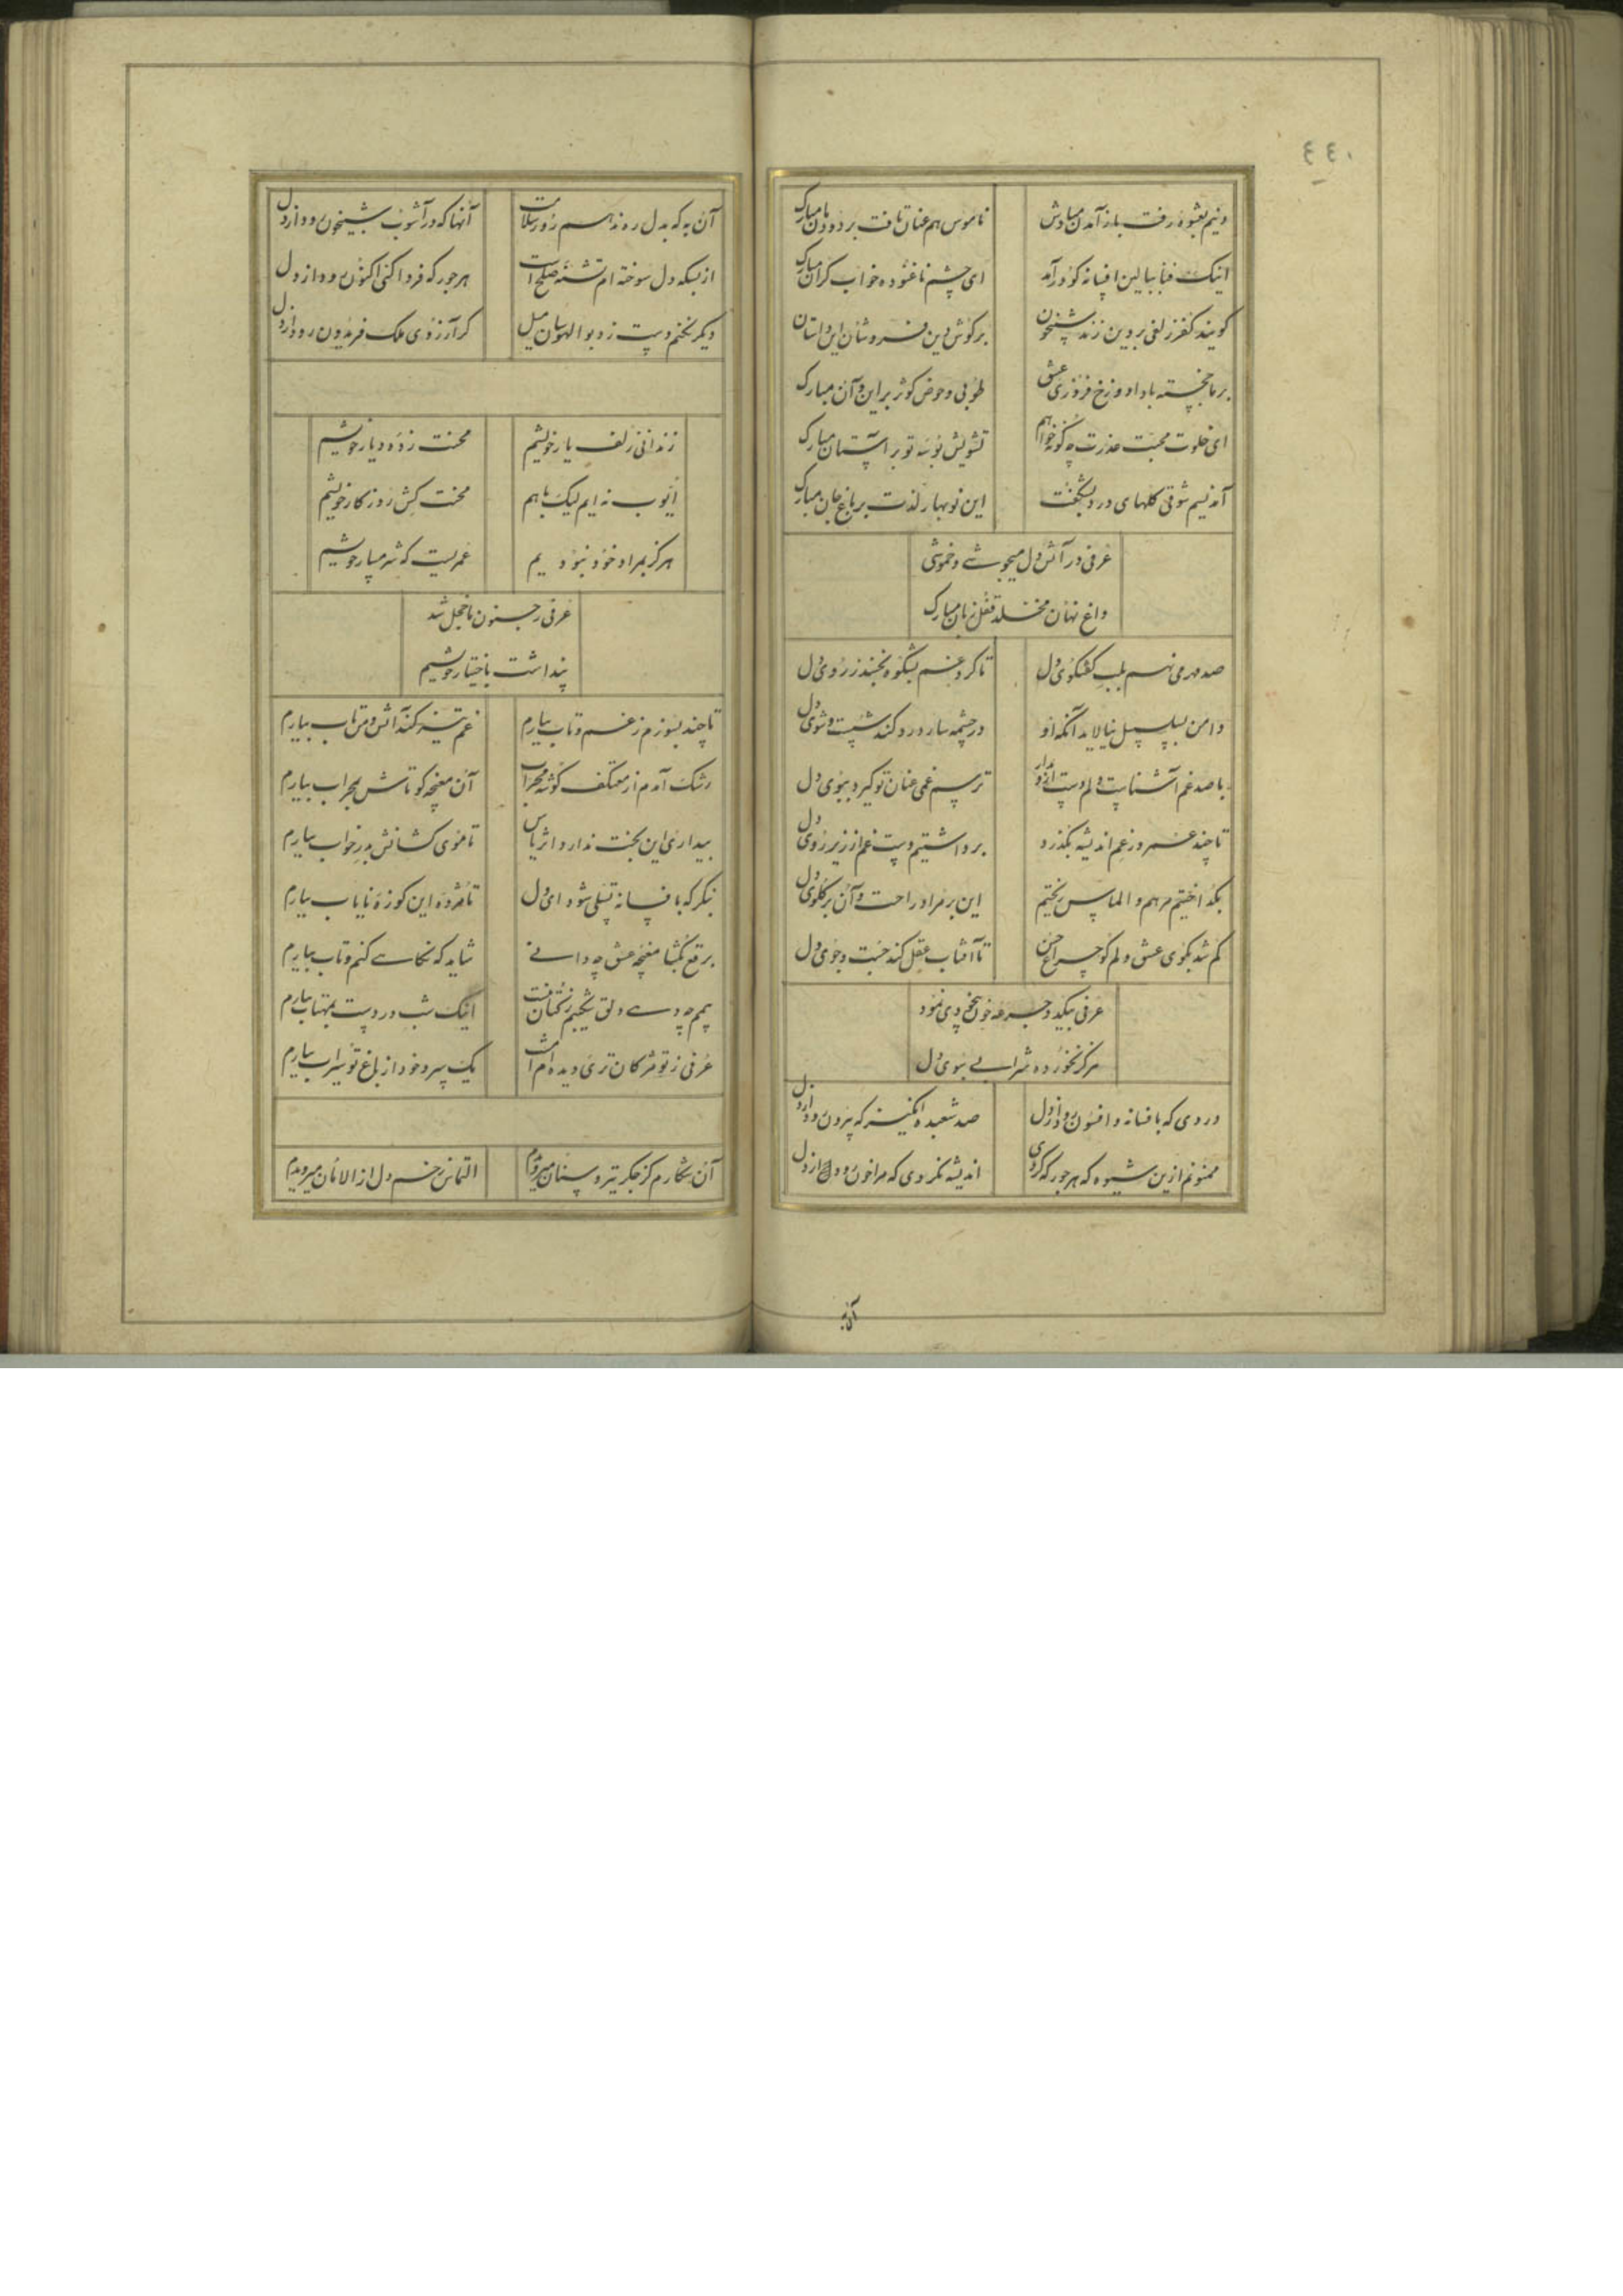 ٤٤٠
دینم بعشوه رفت باز آمدن مبادش ناموس هم عنان تافت بر دودمان مبارک
اینک فنا ببالین افسانه گو درآمد ای چشم ناغنوده خواب گران مبارک
گویند کفر زلفی بر دین زند شبیخون بر گوش دین فروشان این داستان
بر ما خجسته بادا دوزخ فروزی عشق طوبی و حوض کوثر بر این و آن مبارک
ای خلوت محبت عذرت چگونه خواهم تشویش بوسه تو بر آستان مبارک
آمد نسیم شوقی گلهای درد بشگفت این نوبهار لذت بر باغ جان مبارک
عرفی در آتش دل میجوشی و خموشی
داغ نهان مخلد قفل زبان مبارک
صد مهر می نهم بلب گفتگوی دل تا گرد غم بشکوه نخیزد ز روی دل
دامن بسلسبیل نیالاید آنکه او در چشمه سار درد کند شست و شوی دل
با صد غم آشناست دلم دست ازو مدار ترسم غمی عنان تو گیرد ببوی دل
تا چند عمر در غم اندیشه بگذرد برداشتیم دست غم از زیر روی دل
بگداختیم مرهم و الماس ریختیم این بر مراد راحت و آن بر گلوی دل
گم شد بکوی عشق دلم کو چراغ حسن تا آفتاب عقل کند جست و جوی دل
عرفی بگید و جرعه خون بیخودی نمود
هرگز نخورده شرابی ببوی دل
دردی که بافسانه و افسون رود از دل صد شعبده انگیز که بیرون رود از دل
ممنونم ازین شیوه که هر جور که کردی اندیشه نکردی که مرا خون رود از دل
آن به
آن به که بدل روند هم روز سلامت آنها که در آشوب شبیخون رود از دل
از بسکه دل سوخته ام تشنه صلح است هر جور که فردا کنی اکنون رود از دل
دیگر نخنم دست رد بوالهوسان میل گر آرزوی ملک فریدون رود از دل
زندانی زلف یار خویشیم محنت زده دیار خویشیم
ایوب نه ایم لیک با هم محنت کش روزگار خویشیم
هرگز بمراد خود نبودیم عمریست که شرمسار خویشیم
عرفی ز جنون ما خجل شد
پنداشت باختیار خویشیم
تا چند بسوزم ز غم و تاب بیارم غم تیز کند آتش و من آب بیارم
رشک آمدم از معتکف گوشه محراب آن مغبچه کو تاش بمحراب بیارم
بیداری این بخت ندارد اثر یاس تا موی کشانش بدر خواب بیارم
بنگر که بافسانه تسلی شود ای دل تا مژده این کوزه نایاب بیارم
برقع بگشا مغبچه عش چه دانی شاید که نگاهی کنم و تاب بیارم
اینک شب در دست بمهتاب بیارم
عرفی ز تو مژگان تری دیده ام است یک سرو خود از باغ تو سیراب بیارم
آن شکارم کز جگر تیر و سنان میرویدم التماس زخم دل از الامان میرویدم